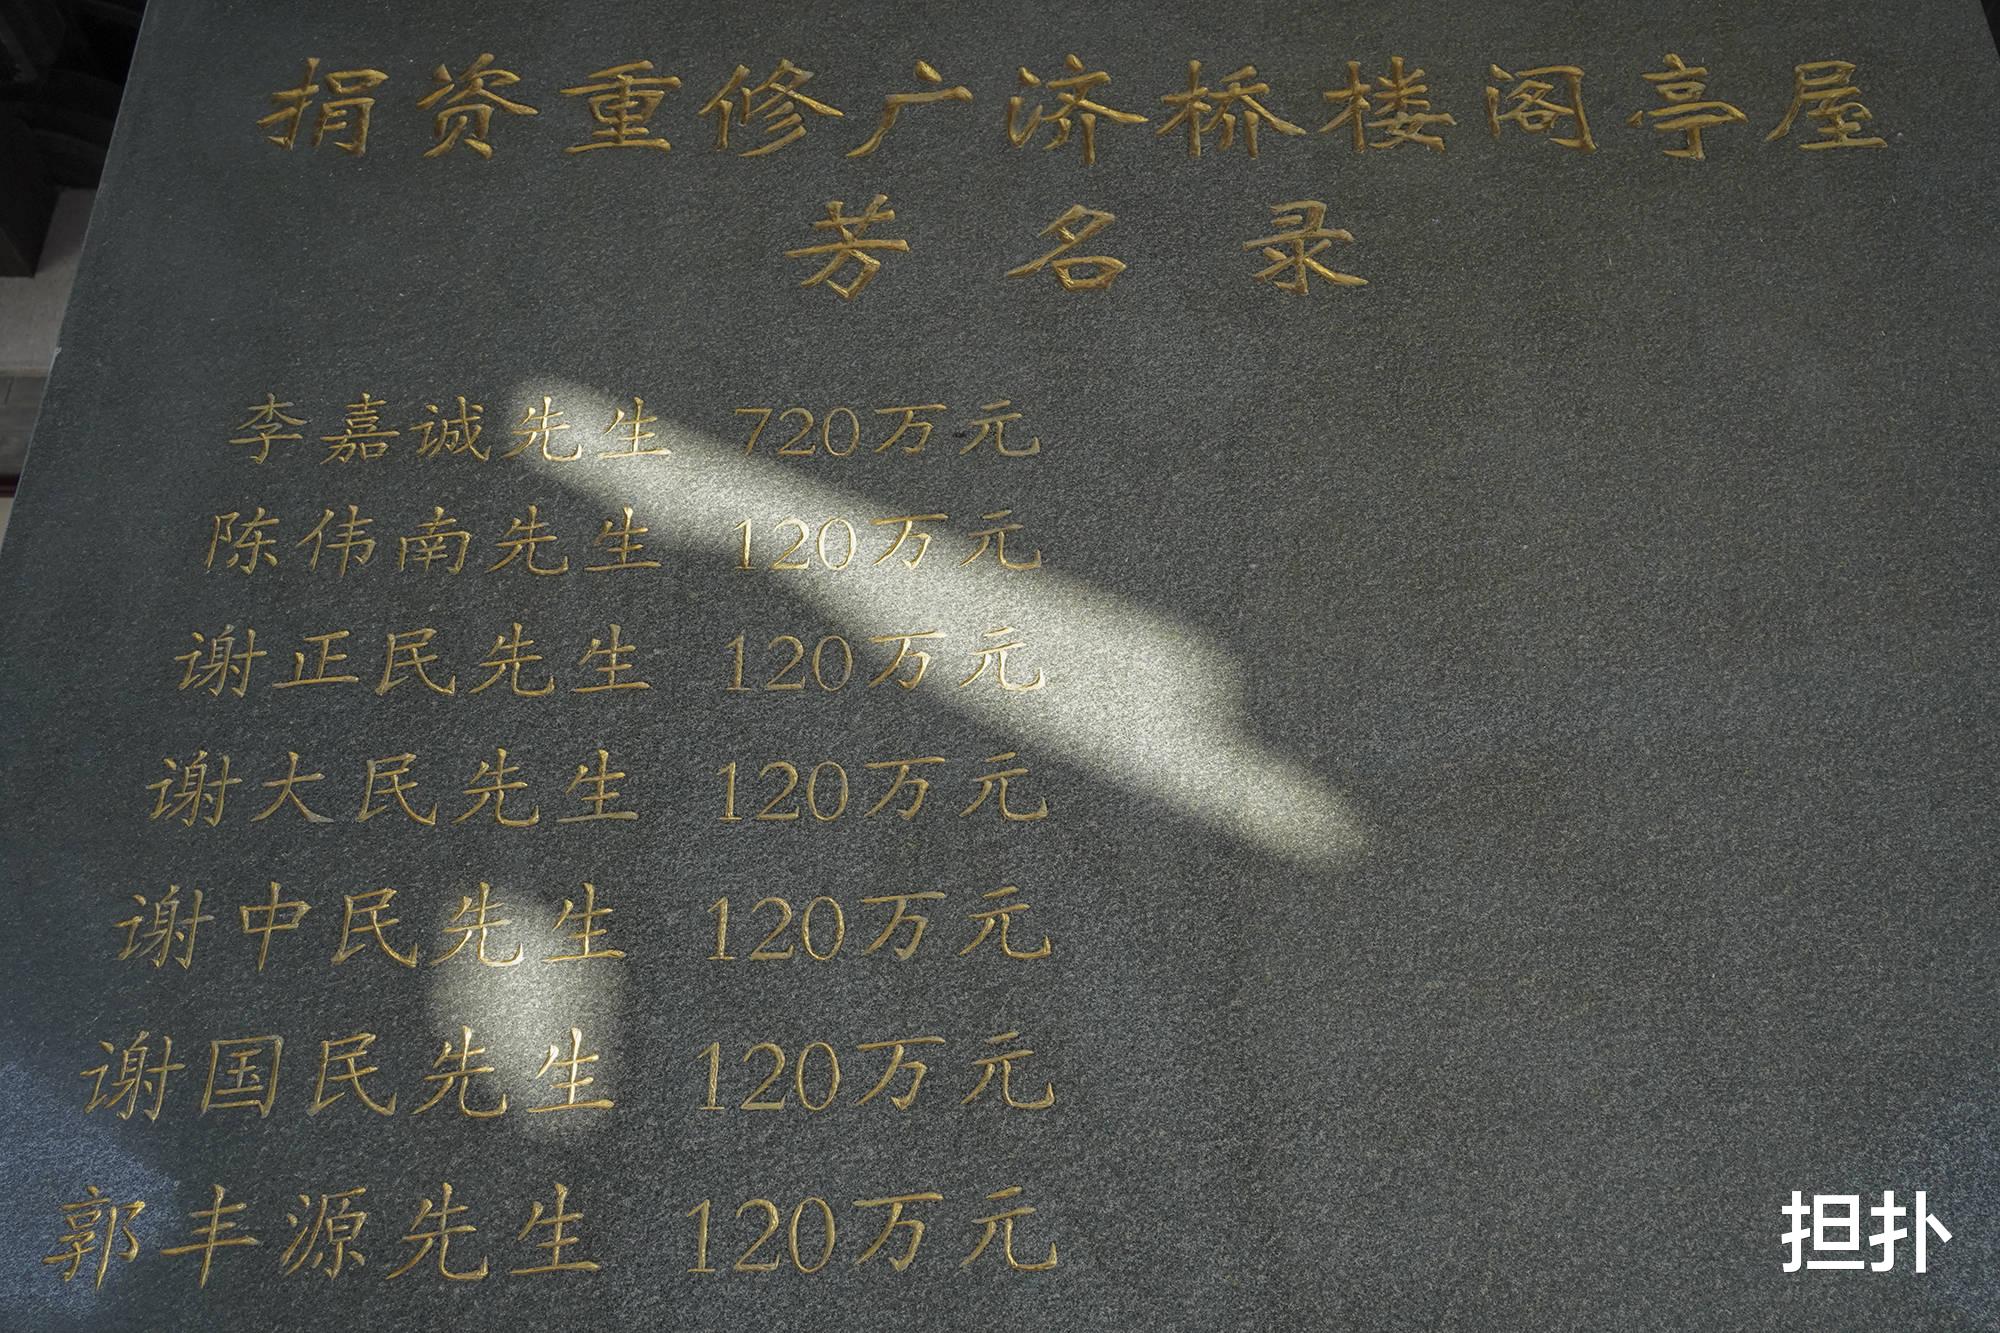 捐资重修广济桥楼阁亭屋
芳名录
李嘉诚先生 720万元
陈伟南先生 120万元
谢正民先生 120万元
谢大民先生 120万元
谢中民先生 120万元
谢国民先生 120万元
郭丰源先生 120万元
担扑